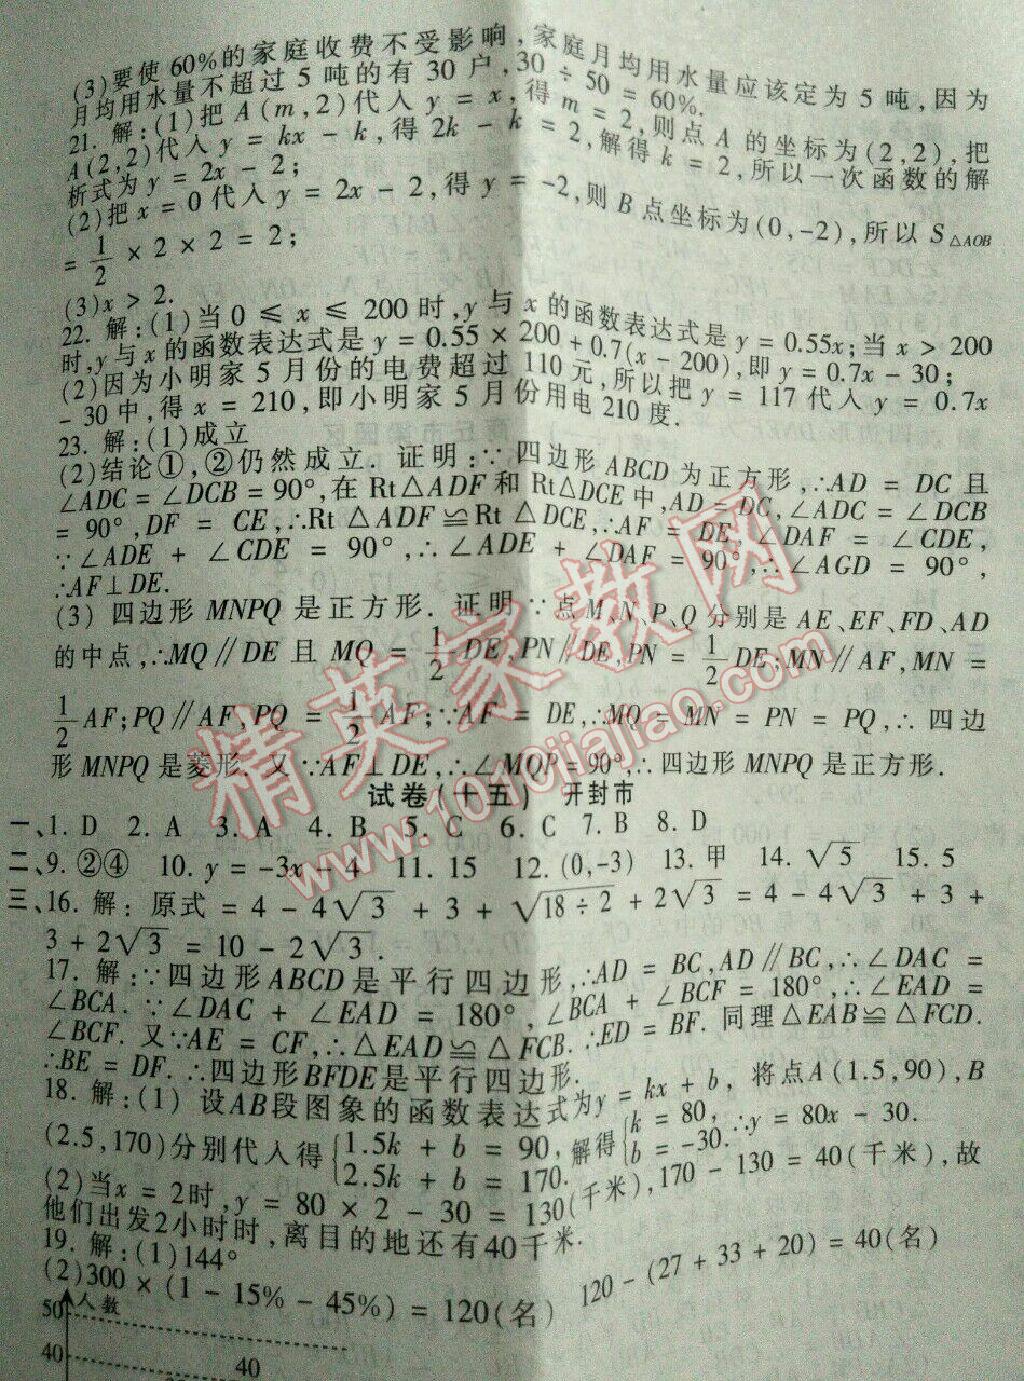 (3)要使60%的家庭收费不受影响,家庭月均用水量应该定为5吨,因为
月均用水量不超过5吨的有30户,30÷50=60%.
21. 解:(1)把A(m,2)代入y=x,得m=2,则点A的坐标为(2,2),把
A(2,2)代入y=kx-k,得2k-k=2,解得k=2,所以一次函数的解
析式为y=2x-2;
(2)把x=0代入y=2x-2,得y=-2,则B点坐标为(0,-2),所以S△AOB
=1/2×2×2=2;
(3)x>2.
22. 解:(1)当0≤x≤200时,y与x的函数表达式是y=0.55x;当x>200
时,y与x的函数表达式是y=0.55×200+0.7(x-200),即y=0.7x-30;
(2)因为小明家5月份的电费超过110元,所以把y=117代入y=0.7x
-30中,得x=210,即小明家5月份用电210度.
23. 解:(1)成立
(2)结论①,②仍然成立.证明:∵四边形ABCD为正方形,∴AD=DC且
∠ADC=∠DCB=90°,在Rt△ADF和Rt△DCE中,AD=DC,∠ADC=∠DCB
=90°,DF=CE,∴Rt△ADF≌Rt△DCE,∴AF=DE,∠DAF=∠CDE,
∵∠ADE+∠CDE=90°,∴∠ADE+∠DAF=90°,∴∠AGD=90°,
∴AF⊥DE.
(3)四边形MNPQ是正方形.证明∵点M、N、P、Q分别是AE、EF、FD、AD
的中点,∴MQ∥DE且MQ=1/2DE,PN∥DE,PN=1/2DE;MN∥AF,MN=
1/2AF;PQ∥AF,PQ=1/2AF;∵AF=DE,∴MQ=MN=PN=PQ,∴四边
形MNPQ是菱形.又∵AF⊥DE,∴∠MQP=90°,∴四边形MNPQ是正方形.
试卷(十五) 开封市
一、1. D 2. A 3. A 4. B 5. C 6. C 7. B 8. D
二、9. ②④ 10. y=-3x-4 11. 15 12. (0,-3) 13. 甲 14. √5 15. 5
三、16. 解:原式=4-4√3+3+√18÷2+2√3=4-4√3+3+
3+2√3=10-2√3.
17. 解:∵四边形ABCD是平行四边形,∴AD=BC,AD∥BC,∴∠DAC=
∠BCA.∵∠DAC+∠EAD=180°,∠BCA+∠BCF=180°,∴∠EAD=
∠BCF.又∵AE=CF,∴△EAD≌△FCB.∴ED=BF.同理△EAB≌△FCD.
∴BE=DF.∴四边形BFDE是平行四边形.
18. 解:(1)设AB段图象的函数表达式为y=kx+b,将点A(1.5,90),B
(2.5,170)分别代入得{1.5k+b=90, 2.5k+b=170. 解得{k=80, b=-30. ∴y=80x-30.
(2)当x=2时,y=80×2-30=130(千米),170-130=40(千米),故
他们出发2小时时,离目的地还有40千米.
19. 解:(1)144°
(2)300×(1-15%-45%)=120(名) 120-(27+33+20)=40(名)
人数
50
40 40
精英家教网
www.1010jiajiao.com